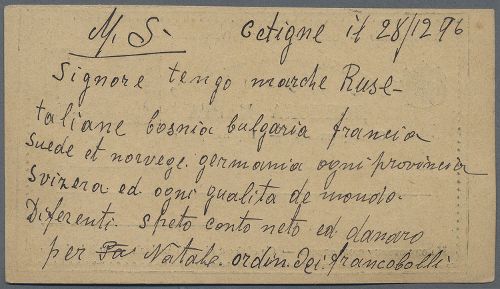 M. S.
Cetigne il 28/12 96
Signore tengo marche Ruse-
taliane bosnia bulgaria francia
Suede et norvege. germania ogni provincia
Svizera ed ogni qualita de mondo.
Diferenti. speto conto neto ed danaro
per Natale. ordin. dei francobolli